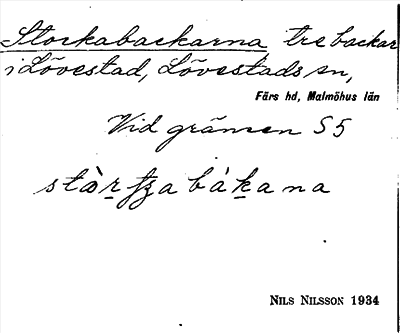 Storkabackarna, tre backar
i Lövestad, Lövestads sn,
Färs hd, Malmöhus län
Vid gränsen S 5
NILS NILSSON 1934